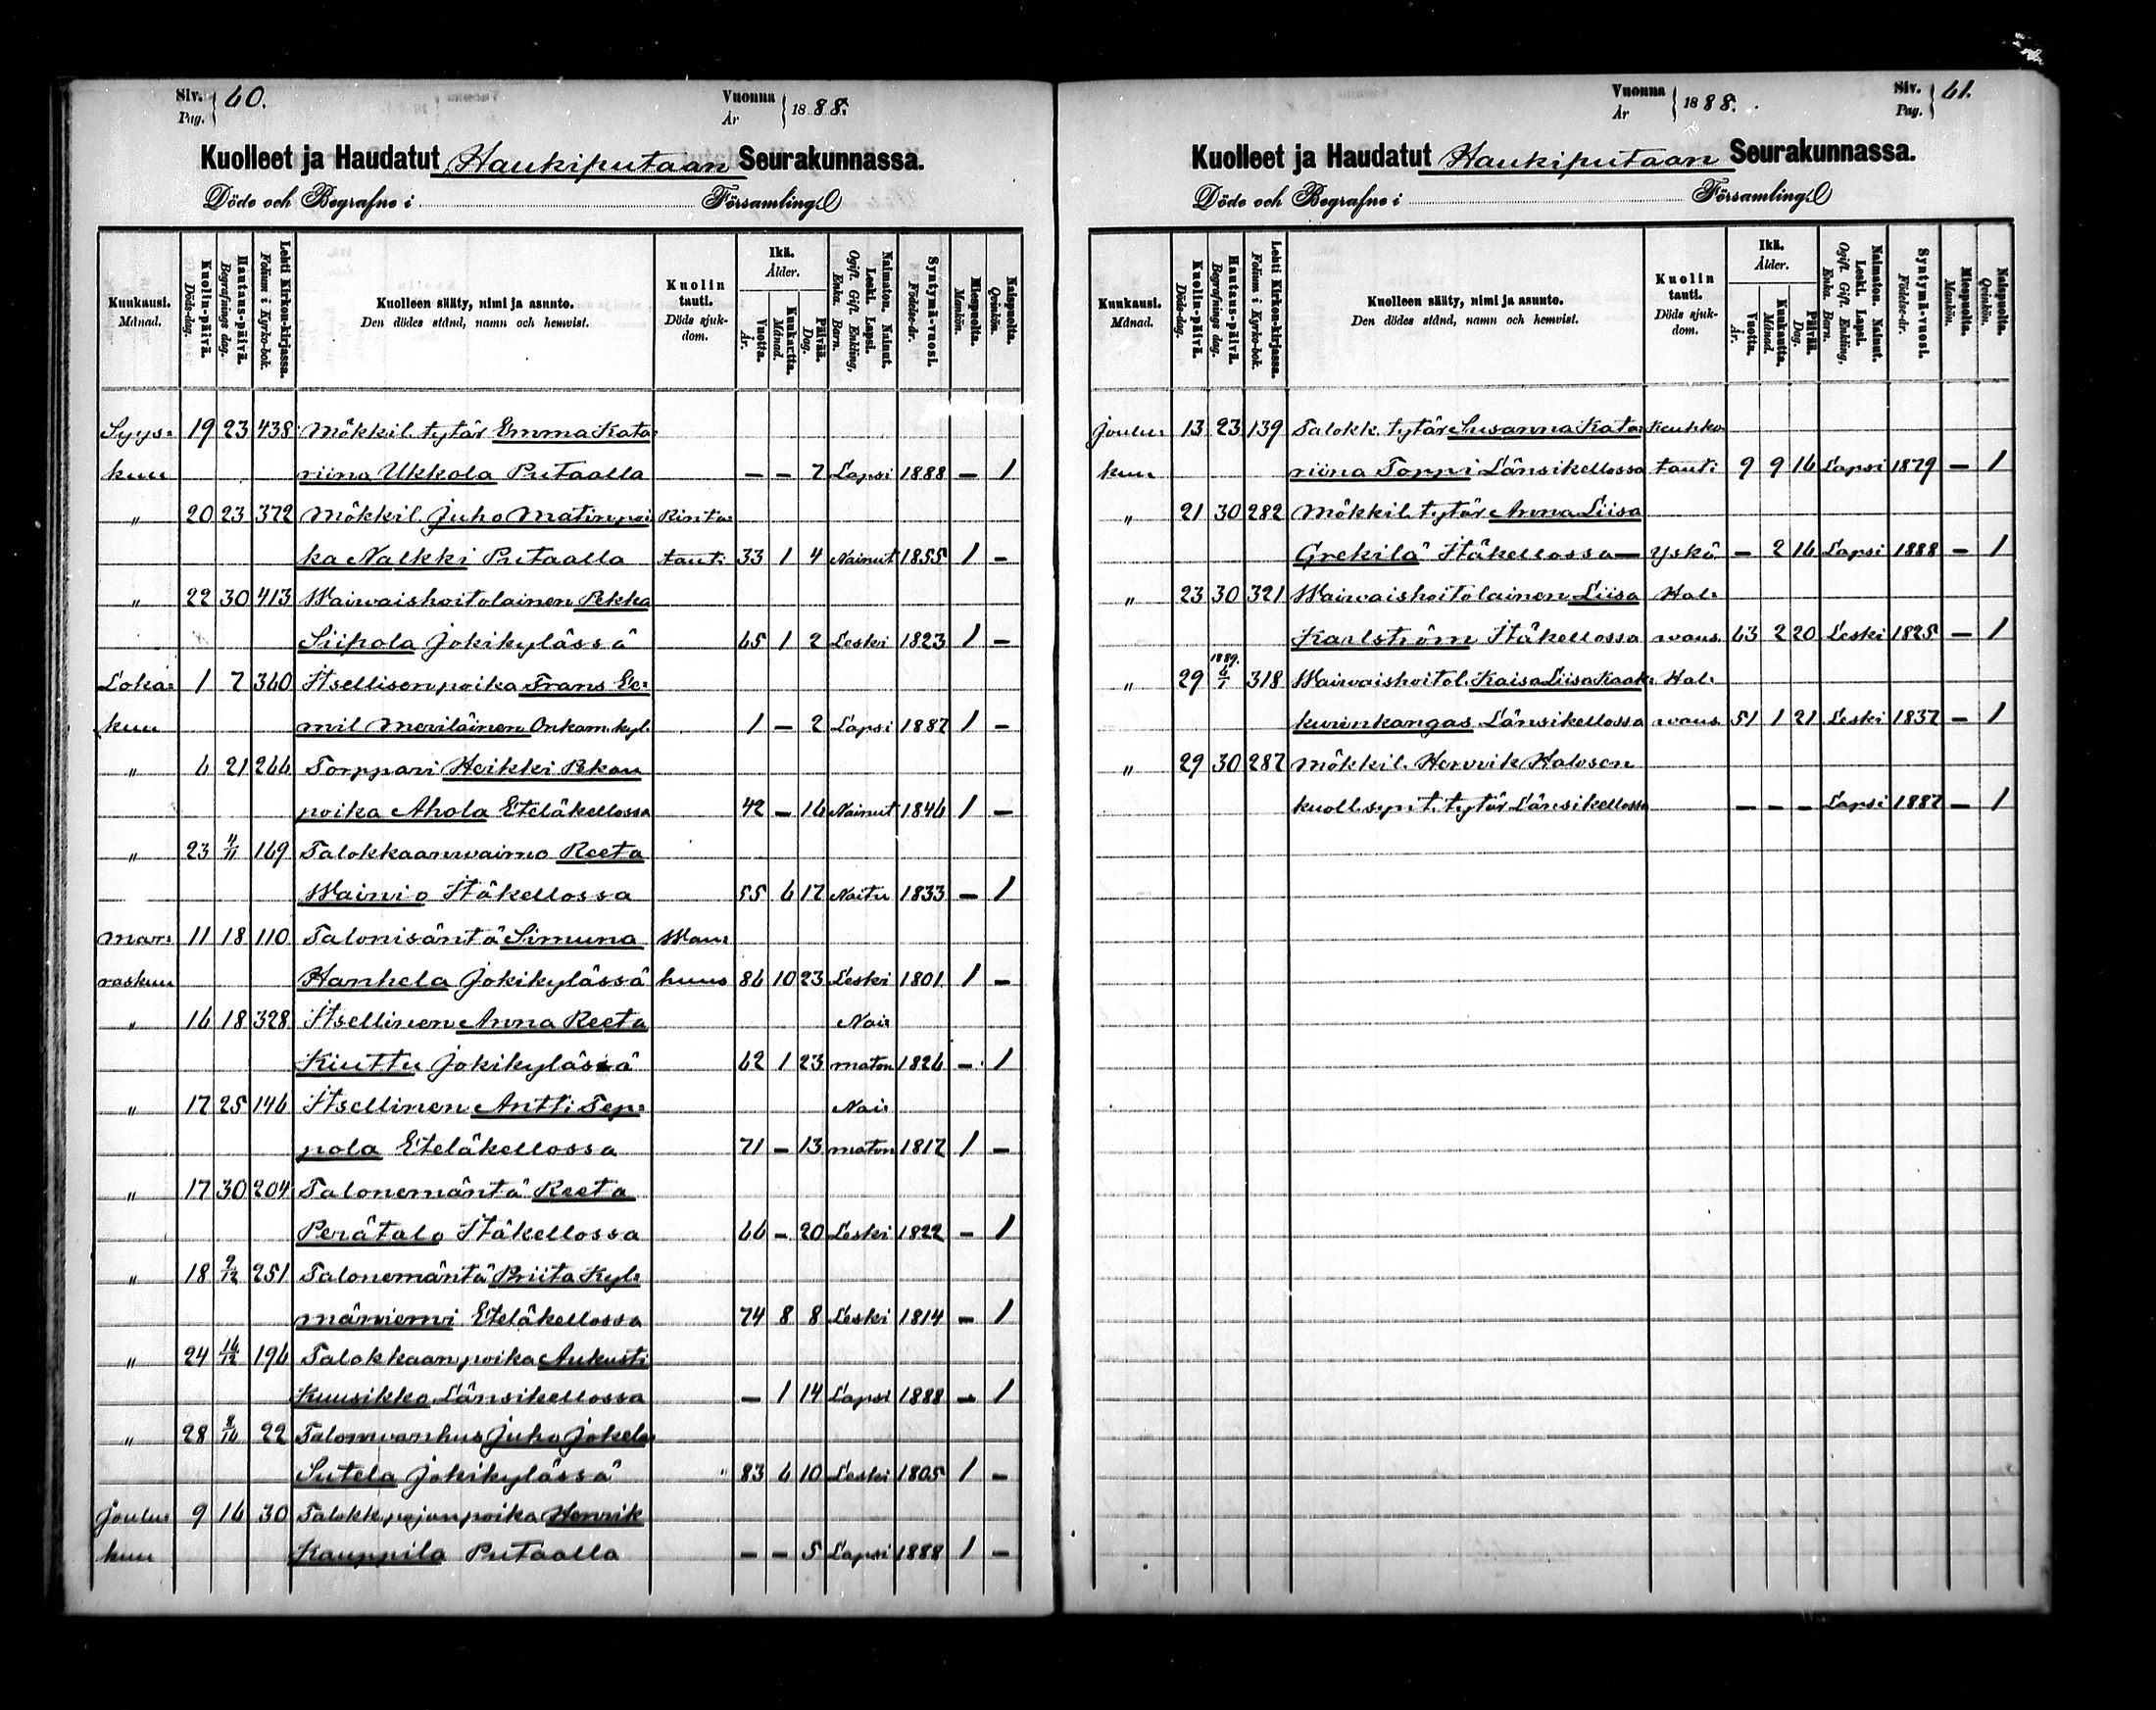 Siv. Pag. 60. Vuonna År 1888.
Kuolleet ja Haudatut Haukiputaan Seurakunnassa.
Döde och Begrafne i Församling
Kuukausi. Månad. Kuolin-päivä. Döds-dag. Hautaus-päivä. Begrafnings dag. Lehti Kirkon-kirjassa. Folium i Kyrko-bok. Kuolleen sääty, nimi ja asunto. Den dödes stånd, namn och hemvist. Kuolin tauti. Döds sjukdom. Ikä. Ålder. Vuotta. År. Kuukautta. Månad. Päivää. Dag. Naimaton. Nainut. Leski. Lapsi. Ogift. Gift. Enkling, Enka. Barn. Syntymä-vuosi. Födelse-år. Miespuolta. Mankön. Naispuolta. Qvinkön.
Syys= 19 23 438 Mökkil. tytär Emma Kata=
kuu riina Ukkola Putaalla — — 7 Lapsi 1888 — 1
" 20 23 372 Mökkil. Juho Matinpoi Rinta=
ka Nalkki Putaalla tauti 33 1 4 Nainut 1855 1 —
" 22 30 413 Waiwaishoitolainen Pekka
Siipola Jokikylässä 65 1 2 Leski 1823 1 —
Loka= 1 7 360 Itsellisenpoika Frans Ee=
kuu mil Meriläinen Onkam. kyl. 1 — 2 Lapsi 1887 1 —
" 6 21 266 Torppari Heikki Pekan
poika Ahola Eteläkellossa 42 — 16 Nainut 1846 1 —
" 23 4/11 169 Talokkaanwaimo Reeta
Wainio Itäkellossa 55 6 17 Naitu 1833 — 1
Mar= 11 18 110 Talonisäntä Simuna Wan=
raskuu Hanhela Jokikylässä huus 86 10 23 Leski 1801 1 —
" 16 18 328 Itsellinen Anna Reeta Nai=
Kiuttu Jokikylässä 62 1 23 maton 1826 — 1
" 17 25 146 Itsellinen Antti Tep= Nai=
pola Eteläkellossa 71 — 13 maton 1817 1 —
" 17 30 204 Talonemäntä Reeta
Perätalo Itäkellossa 66 — 20 Leski 1822 — 1
" 18 9/12 251 Talonemäntä Priita Kyl=
mäniemi Eteläkellossa 74 8 8 Leski 1814 — 1
" 24 16/12 196 Talokkaanpoika Aukusti
Kuusikko Länsikellossa — 1 14 Lapsi 1888 — 1
" 28 22 Talonwanhus Juho Jokela=
Sutela Jokikylässä " 83 6 10 Leski 1805 1 —
Joulu= 9 16 30 Talokk. pojanpoika Henrik
kuu Kauppila Putaalla — — 5 Lapsi 1888 1 —
Vuonna År 1888. Siv. Pag. 61.
Kuolleet ja Haudatut Haukiputaan Seurakunnassa.
Döde och Begrafne i Församling
Kuukausi. Månad. Kuolin-päivä. Döds-dag. Hautaus-päivä. Begrafnings dag. Lehti Kirkon-kirjassa. Folium i Kyrko-bok. Kuolleen sääty, nimi ja asunto. Den dödes stånd, namn och hemvist. Kuolin tauti. Döds sjukdom. Ikä. Ålder. Vuotta. År. Kuukautta. Månad. Päivää. Dag. Naimaton. Nainut. Leski. Lapsi. Ogift. Gift. Enkling, Enka. Barn. Syntymä-vuosi. Födelse-år. Miespuolta. Mankön. Naispuolta. Qvinkön.
Joulu= 13 23 139 Talokk. tytär Susanna Kata= Keuhko
kuu riina Torppi Länsikellossa tauti 9 9 16 Lapsi 1879 — 1
" 21 30 282 Mökkil. tytär Anna Liisa
Grekilä Itäkellossa — Yskä — 2 16 Lapsi 1888 — 1
" 23 30 321 Waiwaishoitolainen Liisa Hal=
Karlström Itäkellossa waus 63 2 20 Leski 1825 — 1
1889.
" 29 6/1 318 Waiwaishoitol. Kaisa Liisa Kaak= Hal=
kurinkangas Länsikellossa waus 51 1 21 Leski 1837 — 1
" 29 30 287 Mökkil. Henrik Halosen
kuoll. synt. tytär Länsikellossa — — — Lapsi 1887 — 1